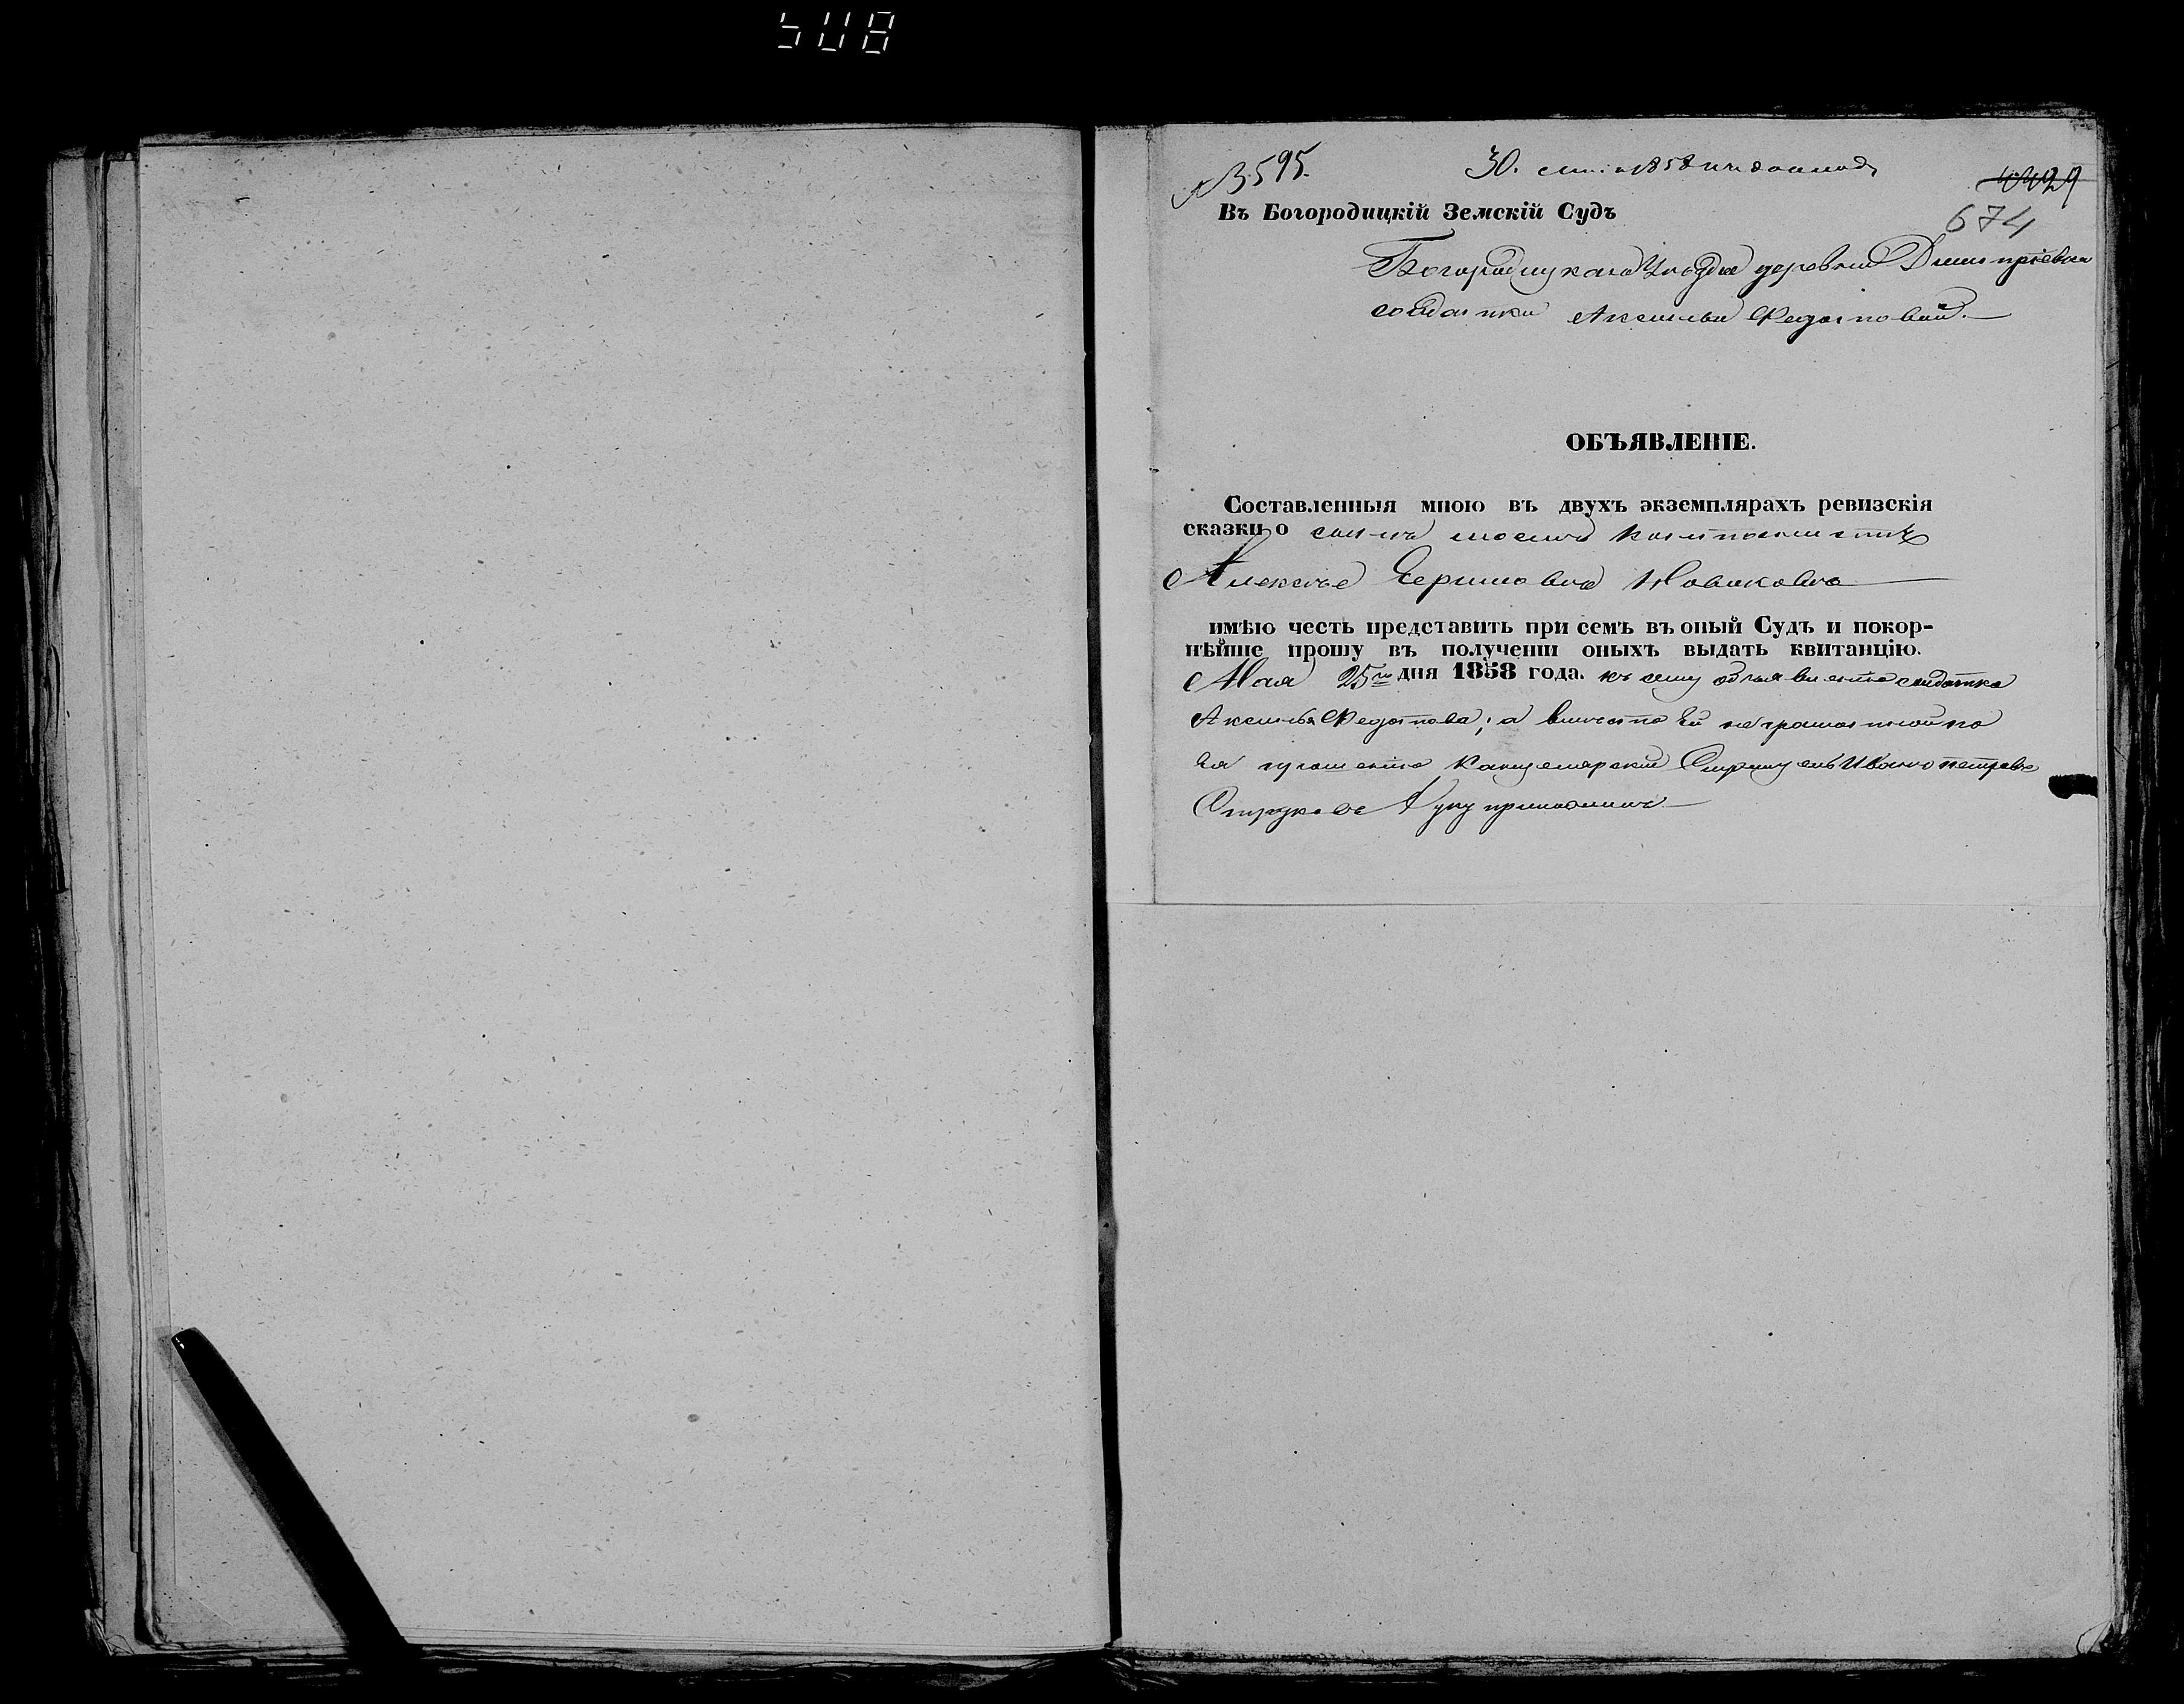 508
№ 3595.
30. мая 1858 къ докладу
4429
Въ Богородицкій Земскій Судъ
674
Богородицкаго Уѣзда деревни Дмитріевки
солдатки Аксиньи Федотовой.
ОБЪЯВЛЕНІЕ.
Составленныя мною въ двухъ экземплярахъ ревизскія
сказки о сынѣ моемъ кантонистѣ
Алексѣе Ефимовѣ Новиковѣ
имѣю честь представить при семъ въ оный Судъ и покор-
нѣйше прошу въ полученіи оныхъ выдать квитанцію.
Мая 25го дня 1858 года. къ сему объявленію солдатка
Аксинья Федотова; а вмѣсто Ей неграмотной по
Ея прошенію Канцелярскій Служитель Иванъ Петровъ
Струковъ Руку приложилъ